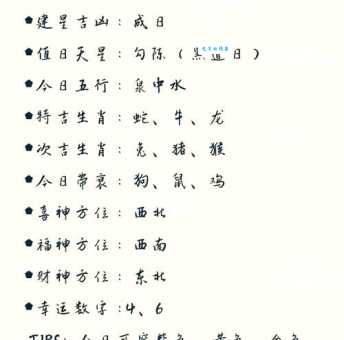 建星吉凶：成日
值日天星：勾陈（黑道日）
今日五行：泉中水
特吉生肖：蛇、牛、龙
次吉生肖：兔、猪、猴
今日带衰：狗、鼠、鸡
喜神方位：西北
福神方位：西南
财神方位：东北
幸运数字：4、6